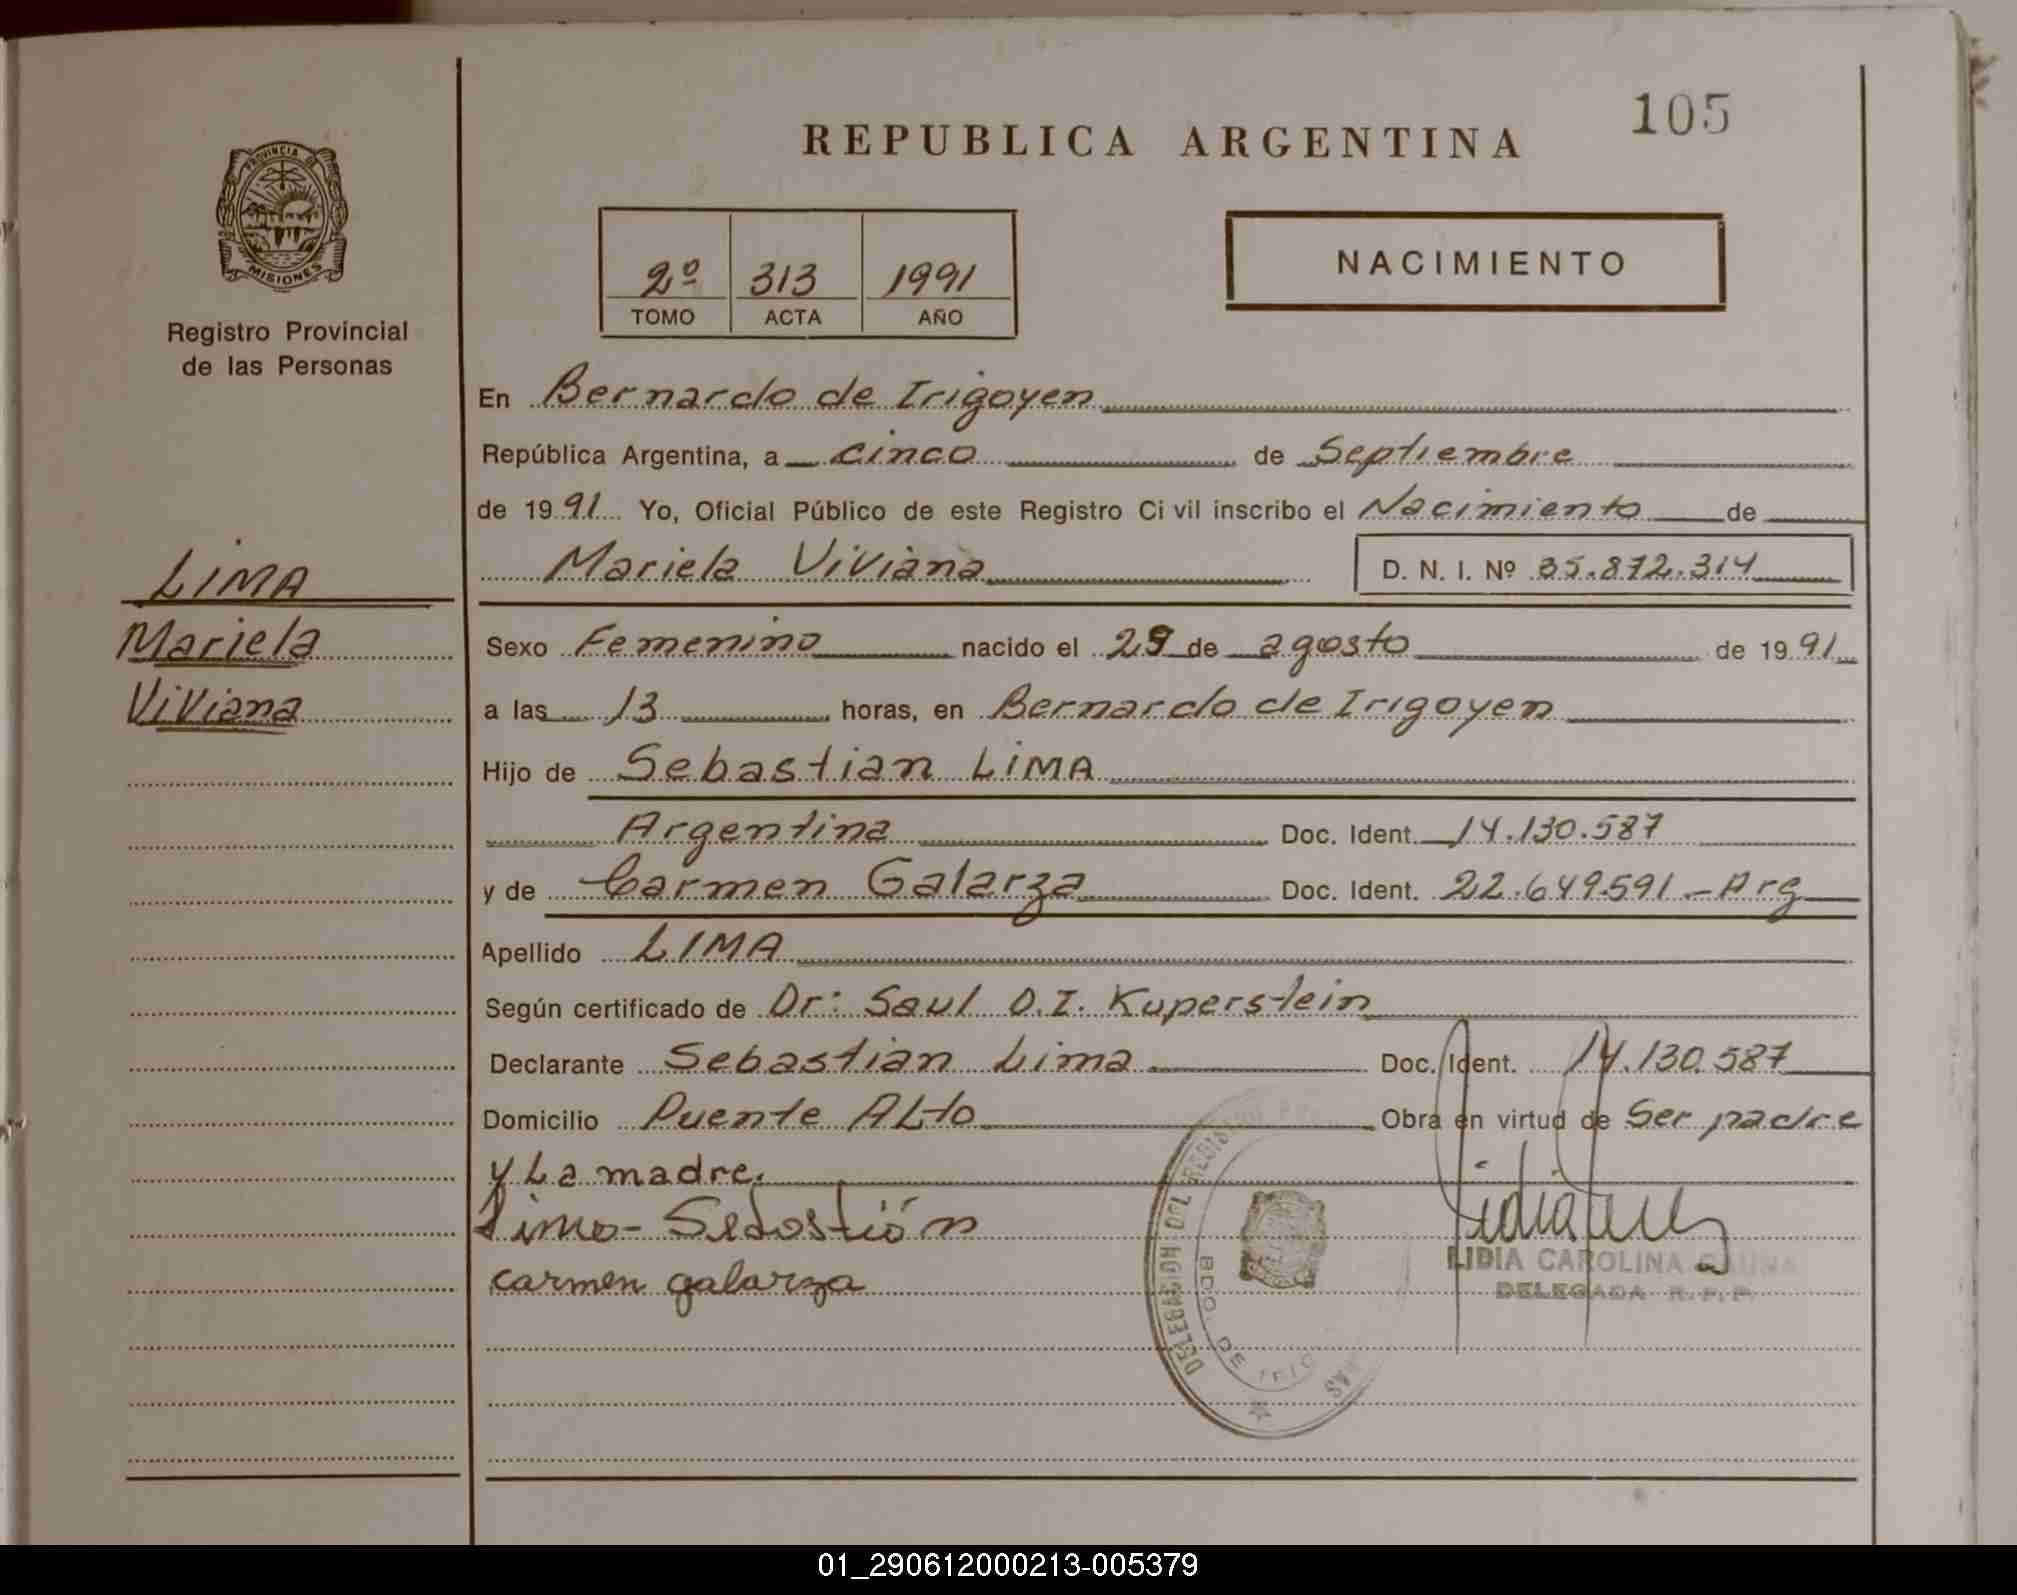 105
REPUBLICA ARGENTINA
PROVINCIA DE
MISIONES
Registro Provincial
de las Personas
2º 313 1991
TOMO ACTA AÑO
NACIMIENTO
En Bernardo de Irigoyen
República Argentina, a cinco de Septiembre
de 1991 Yo, Oficial Público de este Registro Civil inscribo el Nacimiento de
Mariela Viviana D. N. I. Nº 35.872.314
LIMA
Mariela
Viviana
Sexo Femenino nacido el 29 de agosto de 1991
a las 13 horas, en Bernardo de Irigoyen
Hijo de Sebastian LIMA
Argentina Doc. Ident. 14.130.587
y de Carmen Galarza Doc. Ident. 22.649.591 - Arg
Apellido LIMA
Según certificado de Dr: Saul O.I. Kuperstein
Declarante Sebastian Lima Doc. Ident. 14.130.587
Domicilio Puente ALto Obra en virtud de Ser padre
y La madre.
Lima - Sebastión
carmen galarza
DELEGACION DEL REGISTRO
BDO. DE IRIG
LIDIA CAROLINA
DELEGADA R. P. P.
01_290612000213-005379